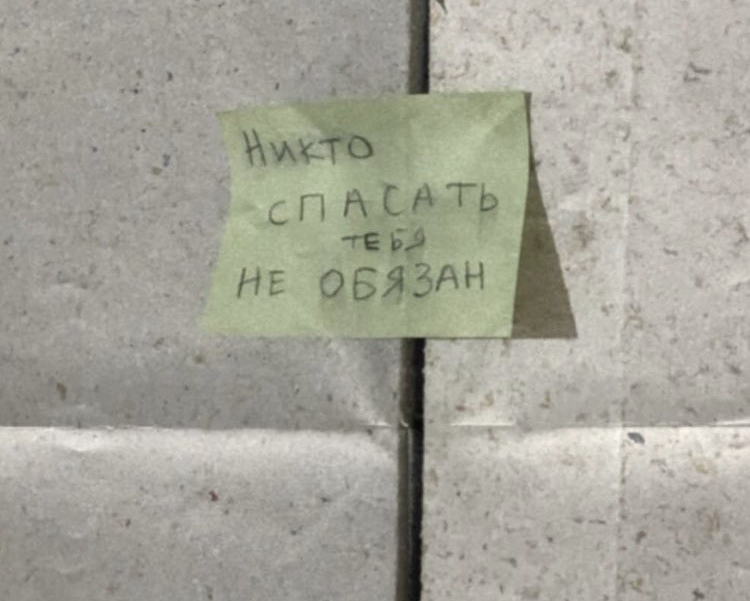 Никто
СПАСАТЬ
ТЕБЯ
НЕ ОБЯЗАН